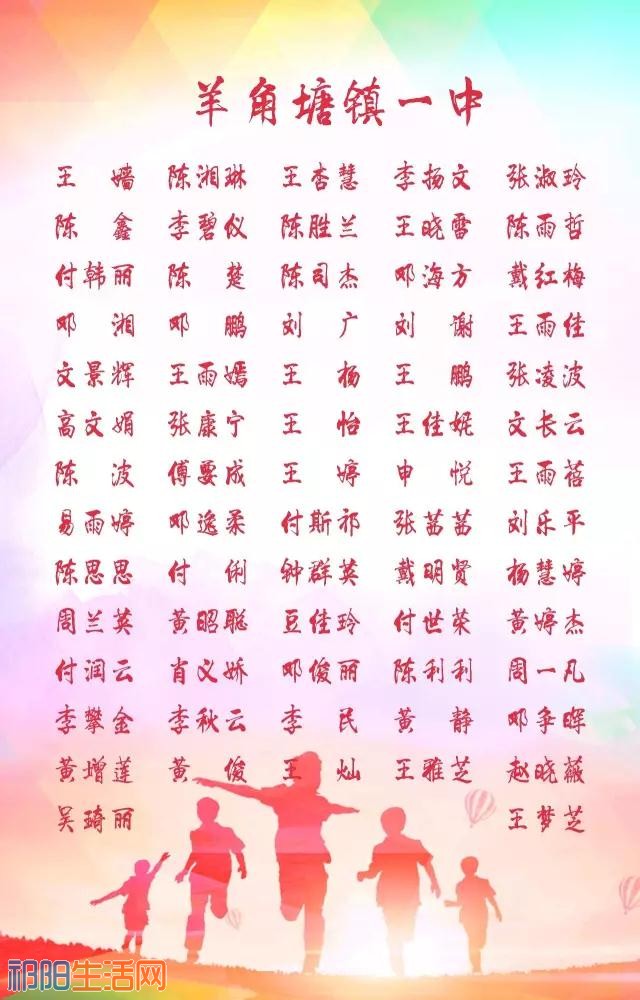 羊角塘镇一中
王 嫱 陈湘琳 王杏慧 李扬文 张淑玲
陈 鑫 李碧仪 陈胜兰 王晓雷 陈雨哲
付韩丽 陈 楚 陈司杰 邓海方 戴红梅
邓 湘 邓 鹏 刘 广 刘 谢 王雨佳
文景辉 王雨嫣 王 杨 王 鹏 张凌波
高文娟 张康宁 王 怡 王佳娓 文长云
陈 波 傅要成 王 婷 申 悦 王雨蓓
易雨婷 邓逸柔 付斯祁 张茜茜 刘乐平
陈思思 付 俐 钟群英 戴明贤 杨慧婷
周兰英 黄昭聪 豆佳玲 付世荣 黄婷杰
付润云 肖义娇 邓俊丽 陈利利 周一凡
李攀金 李秋云 李 民 黄 静 邓争晖
黄增莲 黄 俊 王 灿 王雅芝 赵晓薇
吴琦丽 王梦芝
祁阳生活网